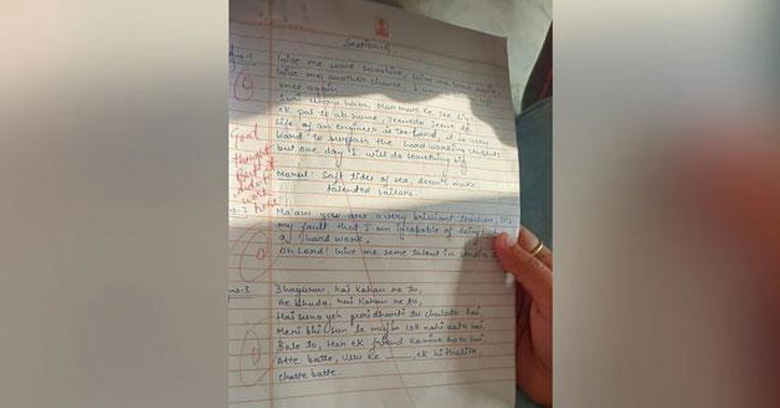 Section-A
Ans-1
Give me some sunshine, Give me some rain
Give me another chance, I wanna grow up
once again
0
ek pal to ab hame, jeene do jeene do
Life of an engineer is too hard, it is very
hard to surpass the hard working students
but one day I will do something big
Good
thought
But it
does't
work
here
Moral: Soft tides of sea, doesn't make
talented sailors.
Ans-2
Ma'am you are a very brilliant teacher, it's
my fault that I am incapable of doing such
a hard work.
Oh Lord! Give me some talent in studies
0
Ans-3
Bhagwan, hai kahan re tu,
Ae khuda, hai kahan re tu,
Hai suna yeh poori dharti tu chalata hai,
Meri bhi sun le mujhe
Bole to, Har ek friend kamina hota hai
Atte batte, Ullu ke ____, ek bithalite,
chatte batte.
0